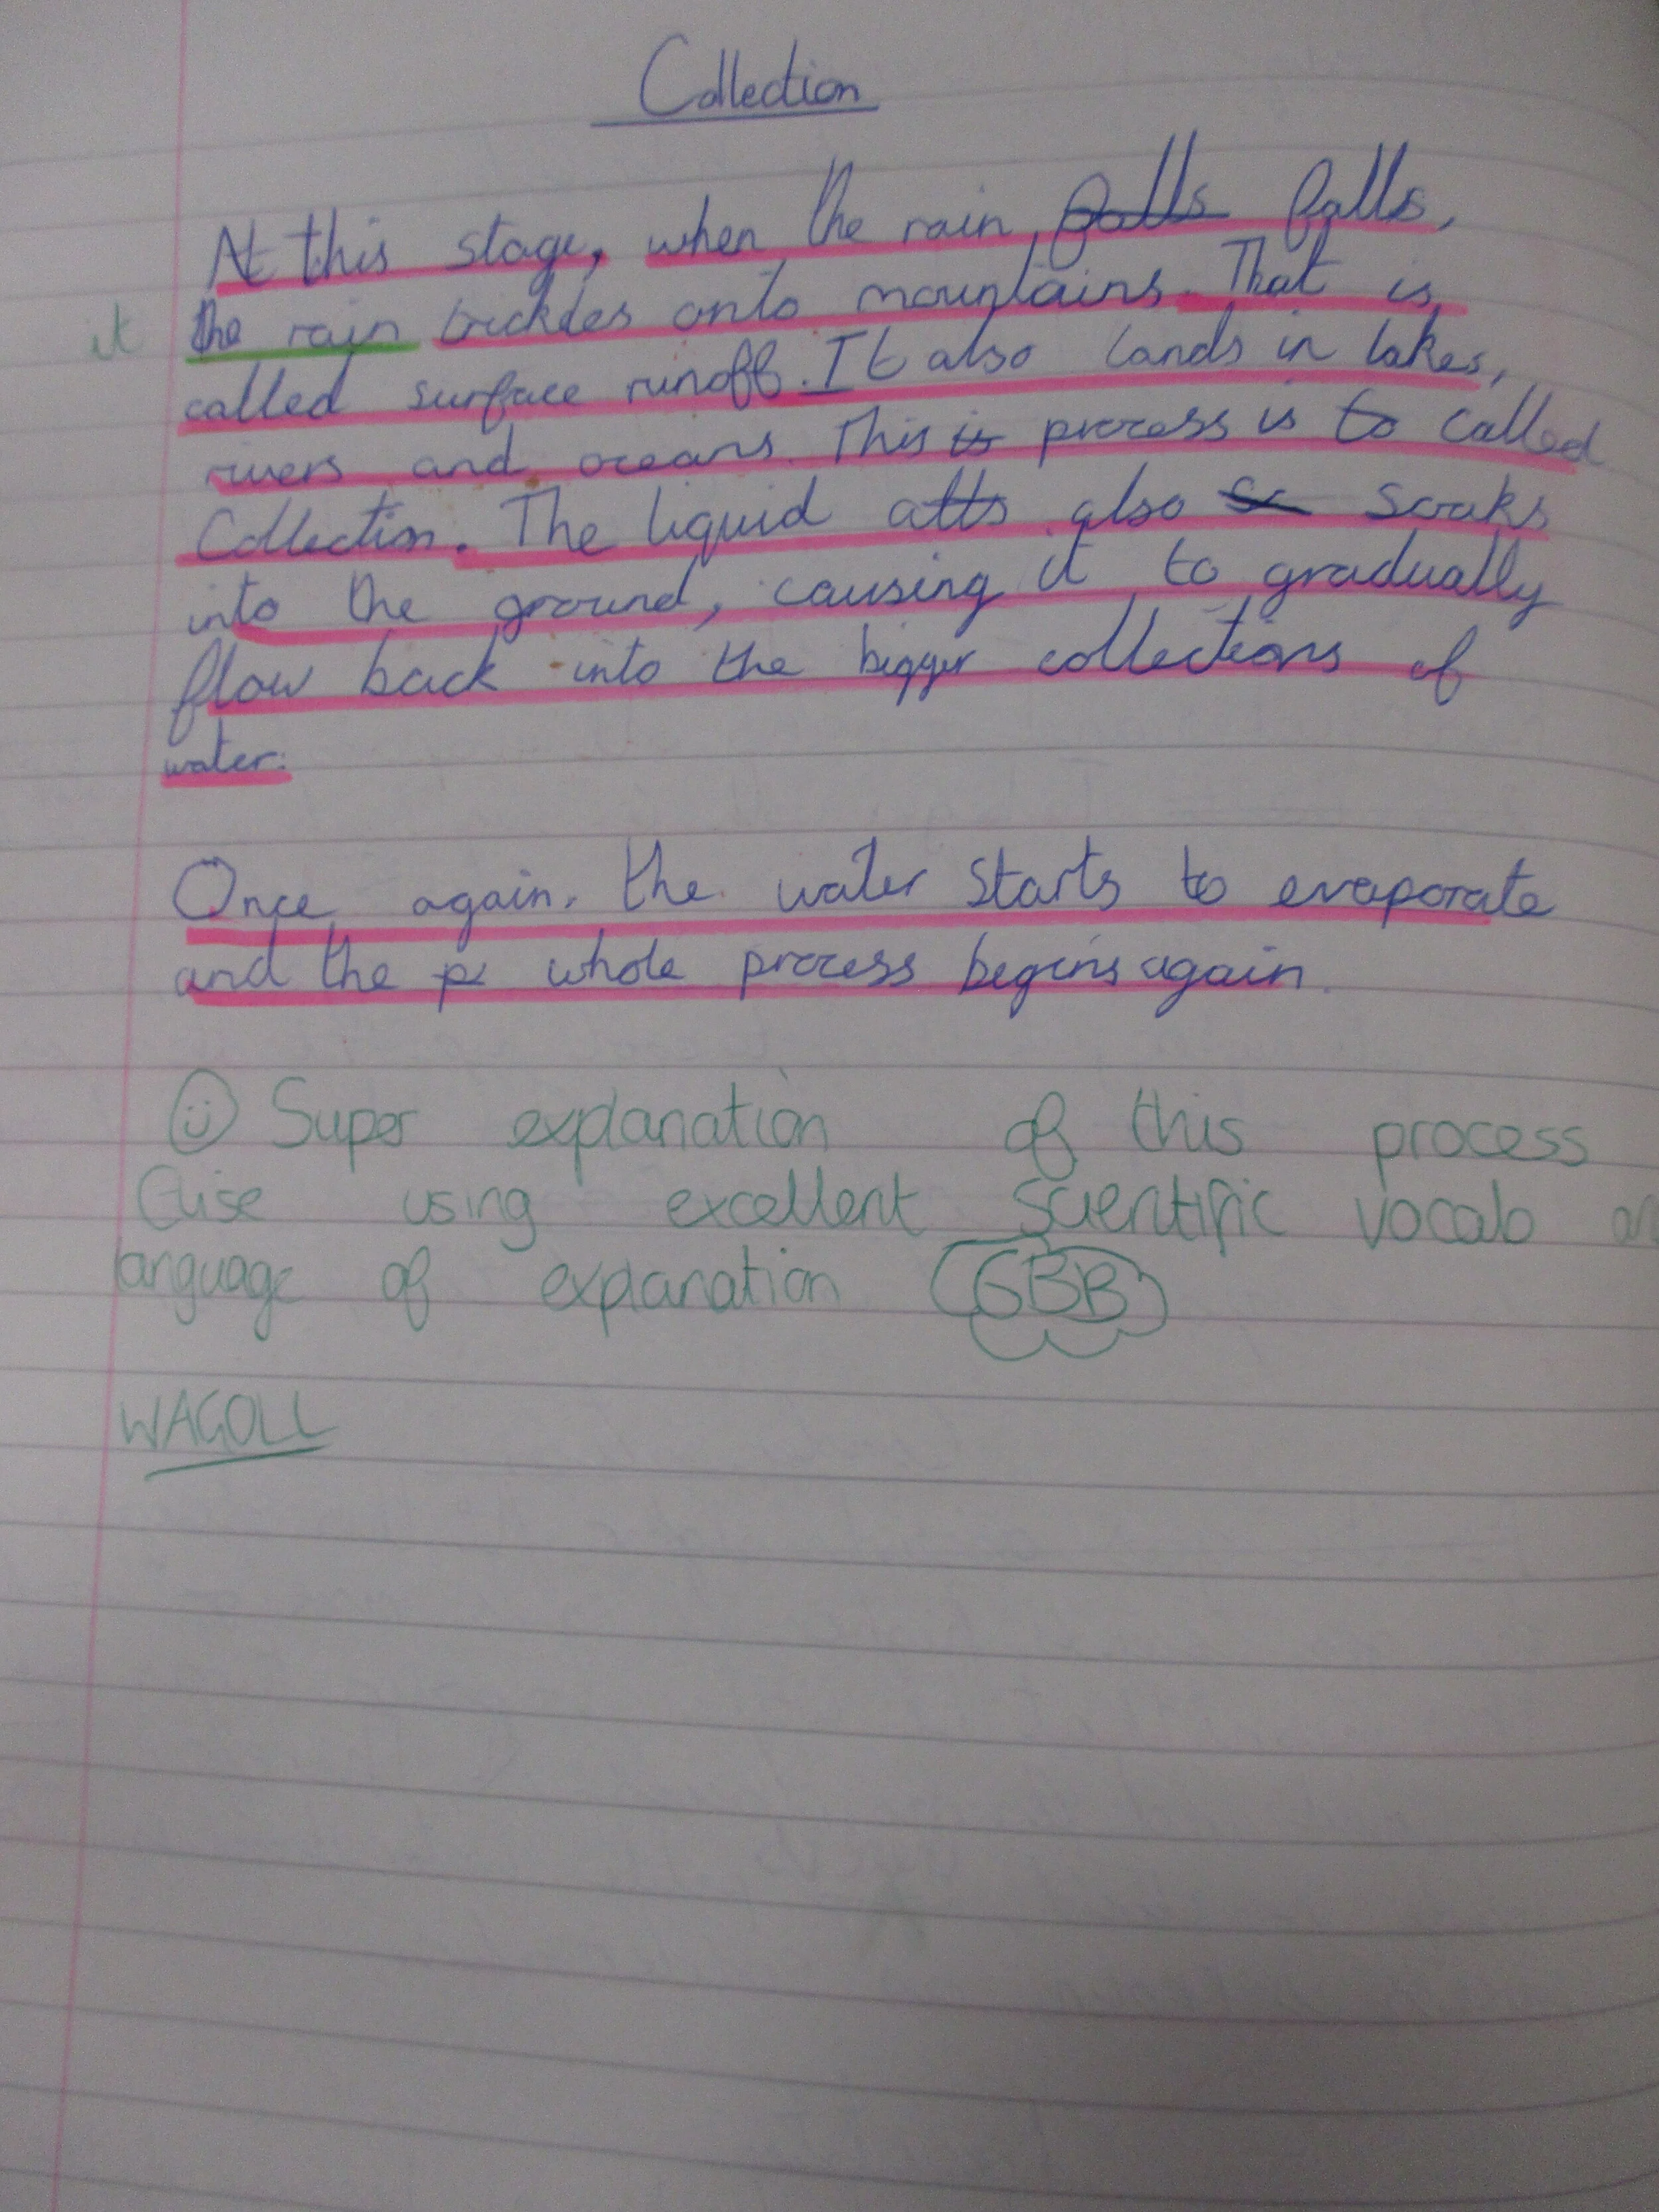 Collection
At this stage, when the rain falls falls,
it the rain trickles onto mountains. That is
called surface runoff. It also lands in lakes,
rivers and oceans. This is process is to called
Collection. The liquid atts also so soaks
into the ground, causing it to gradually
flow back into the bigger collections of
water.
Once again, the water starts to evaporate
and the pr whole process begins again.
Super explanation of this process
Elise using excellent scientific vocab
language of explanation GBB
WAGOLL